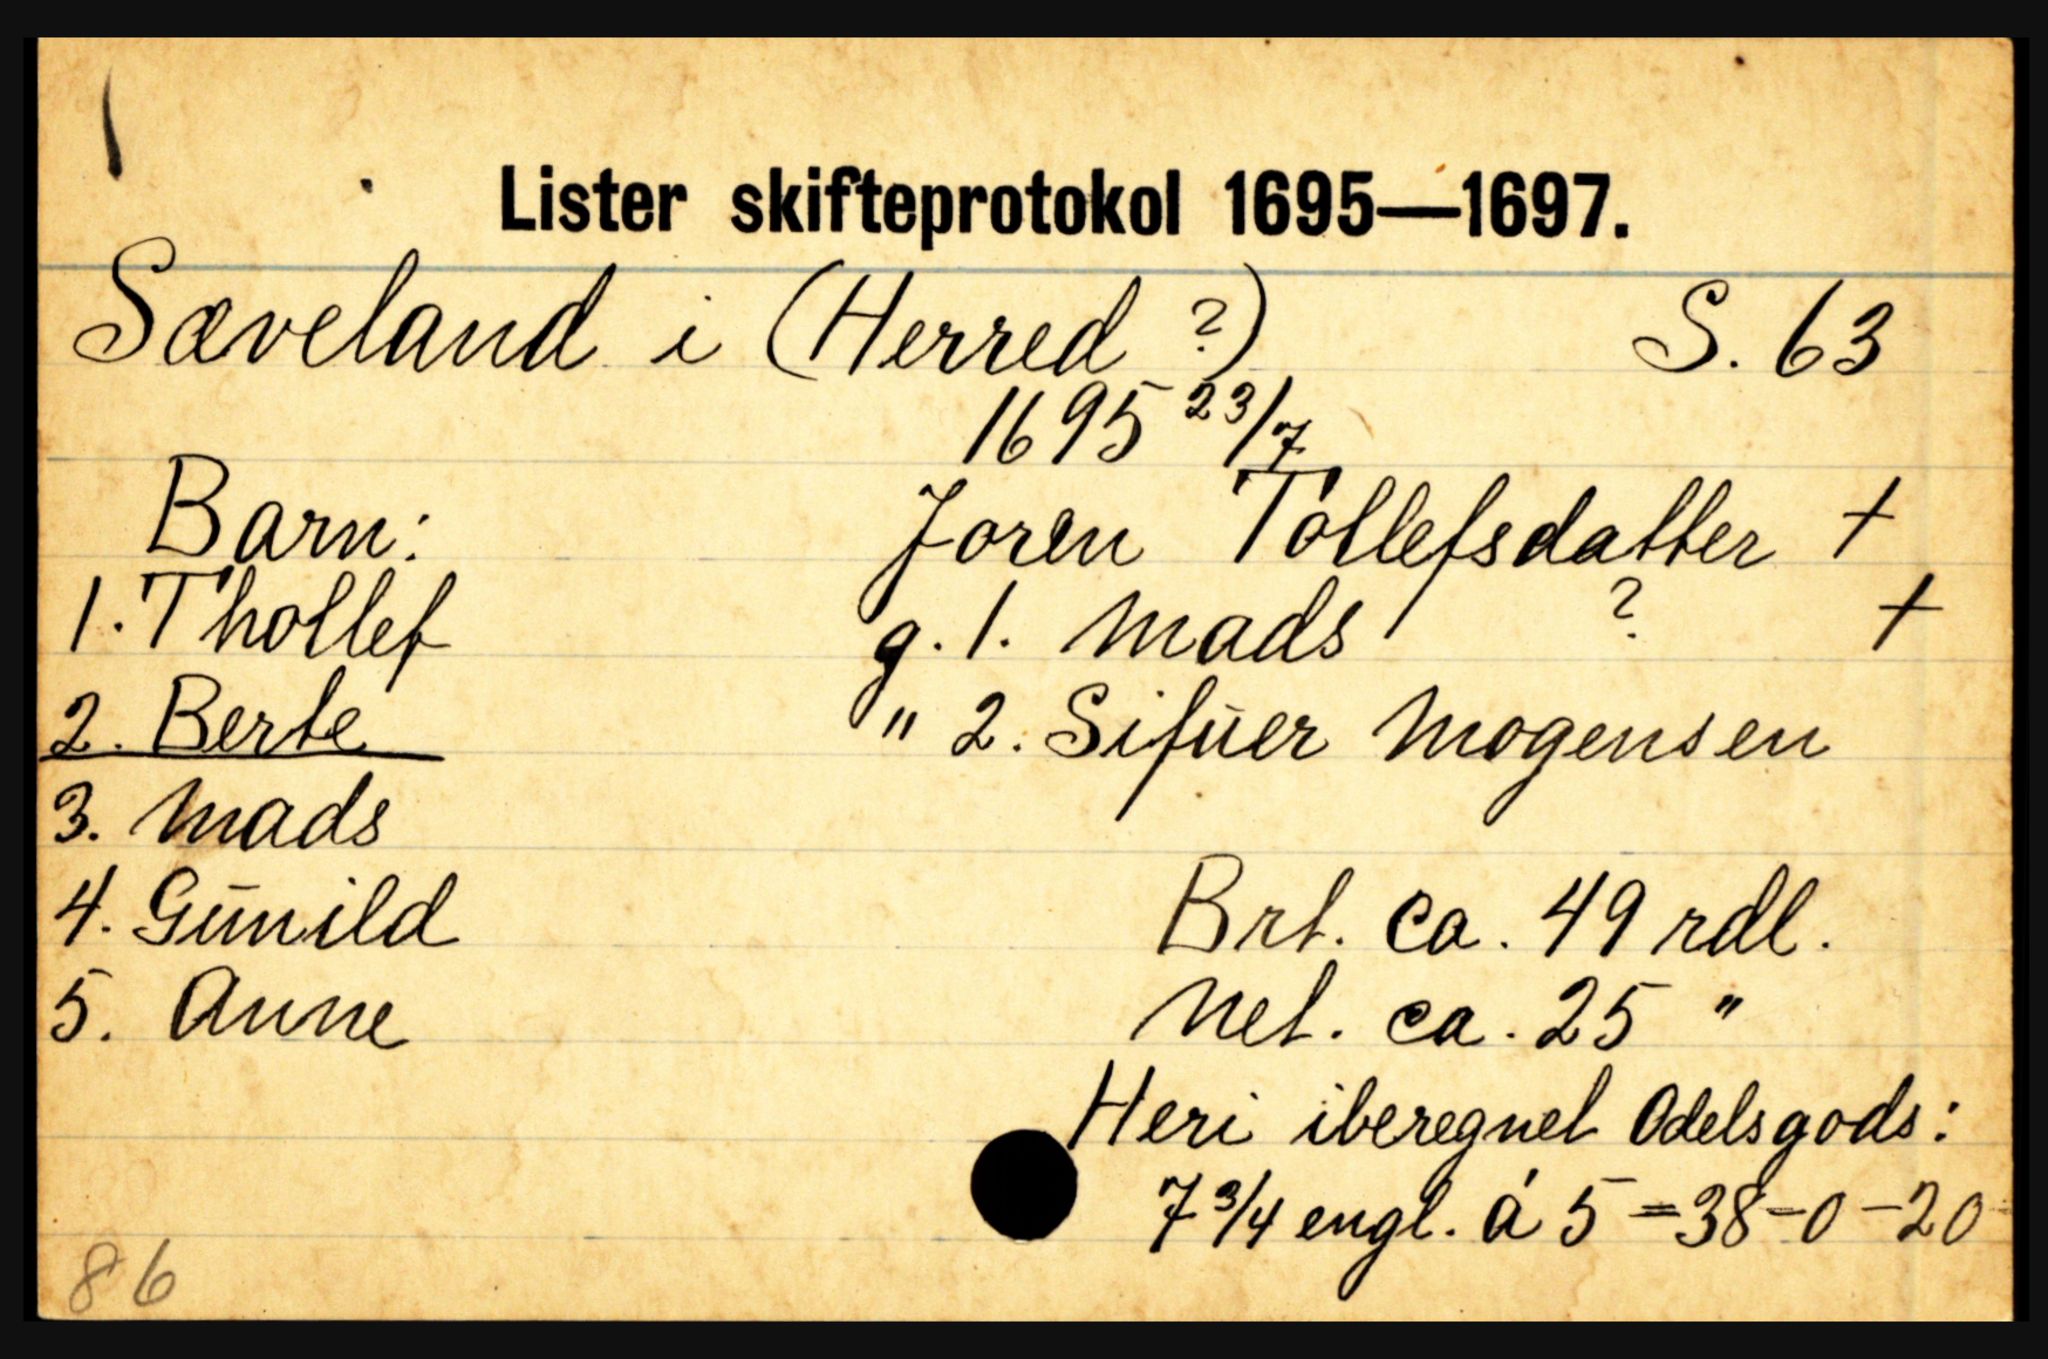 Lister skifteprotokol 1695—1697.
Sæveland i (Herred ?) S. 63
1695 23/7
Barn: Joren Tollefsdatter +
1. Thollef g. 1. Mads ? +
2. Berte " 2. Sifuer Mogensen
3. Mads
4. Gunild Brt. ca. 49 rdl.
5. Anne Net. ca. 25 "
Heri iberegnet Odelsgods:
7 3/4 engl. á 5 = 38-0-20
86